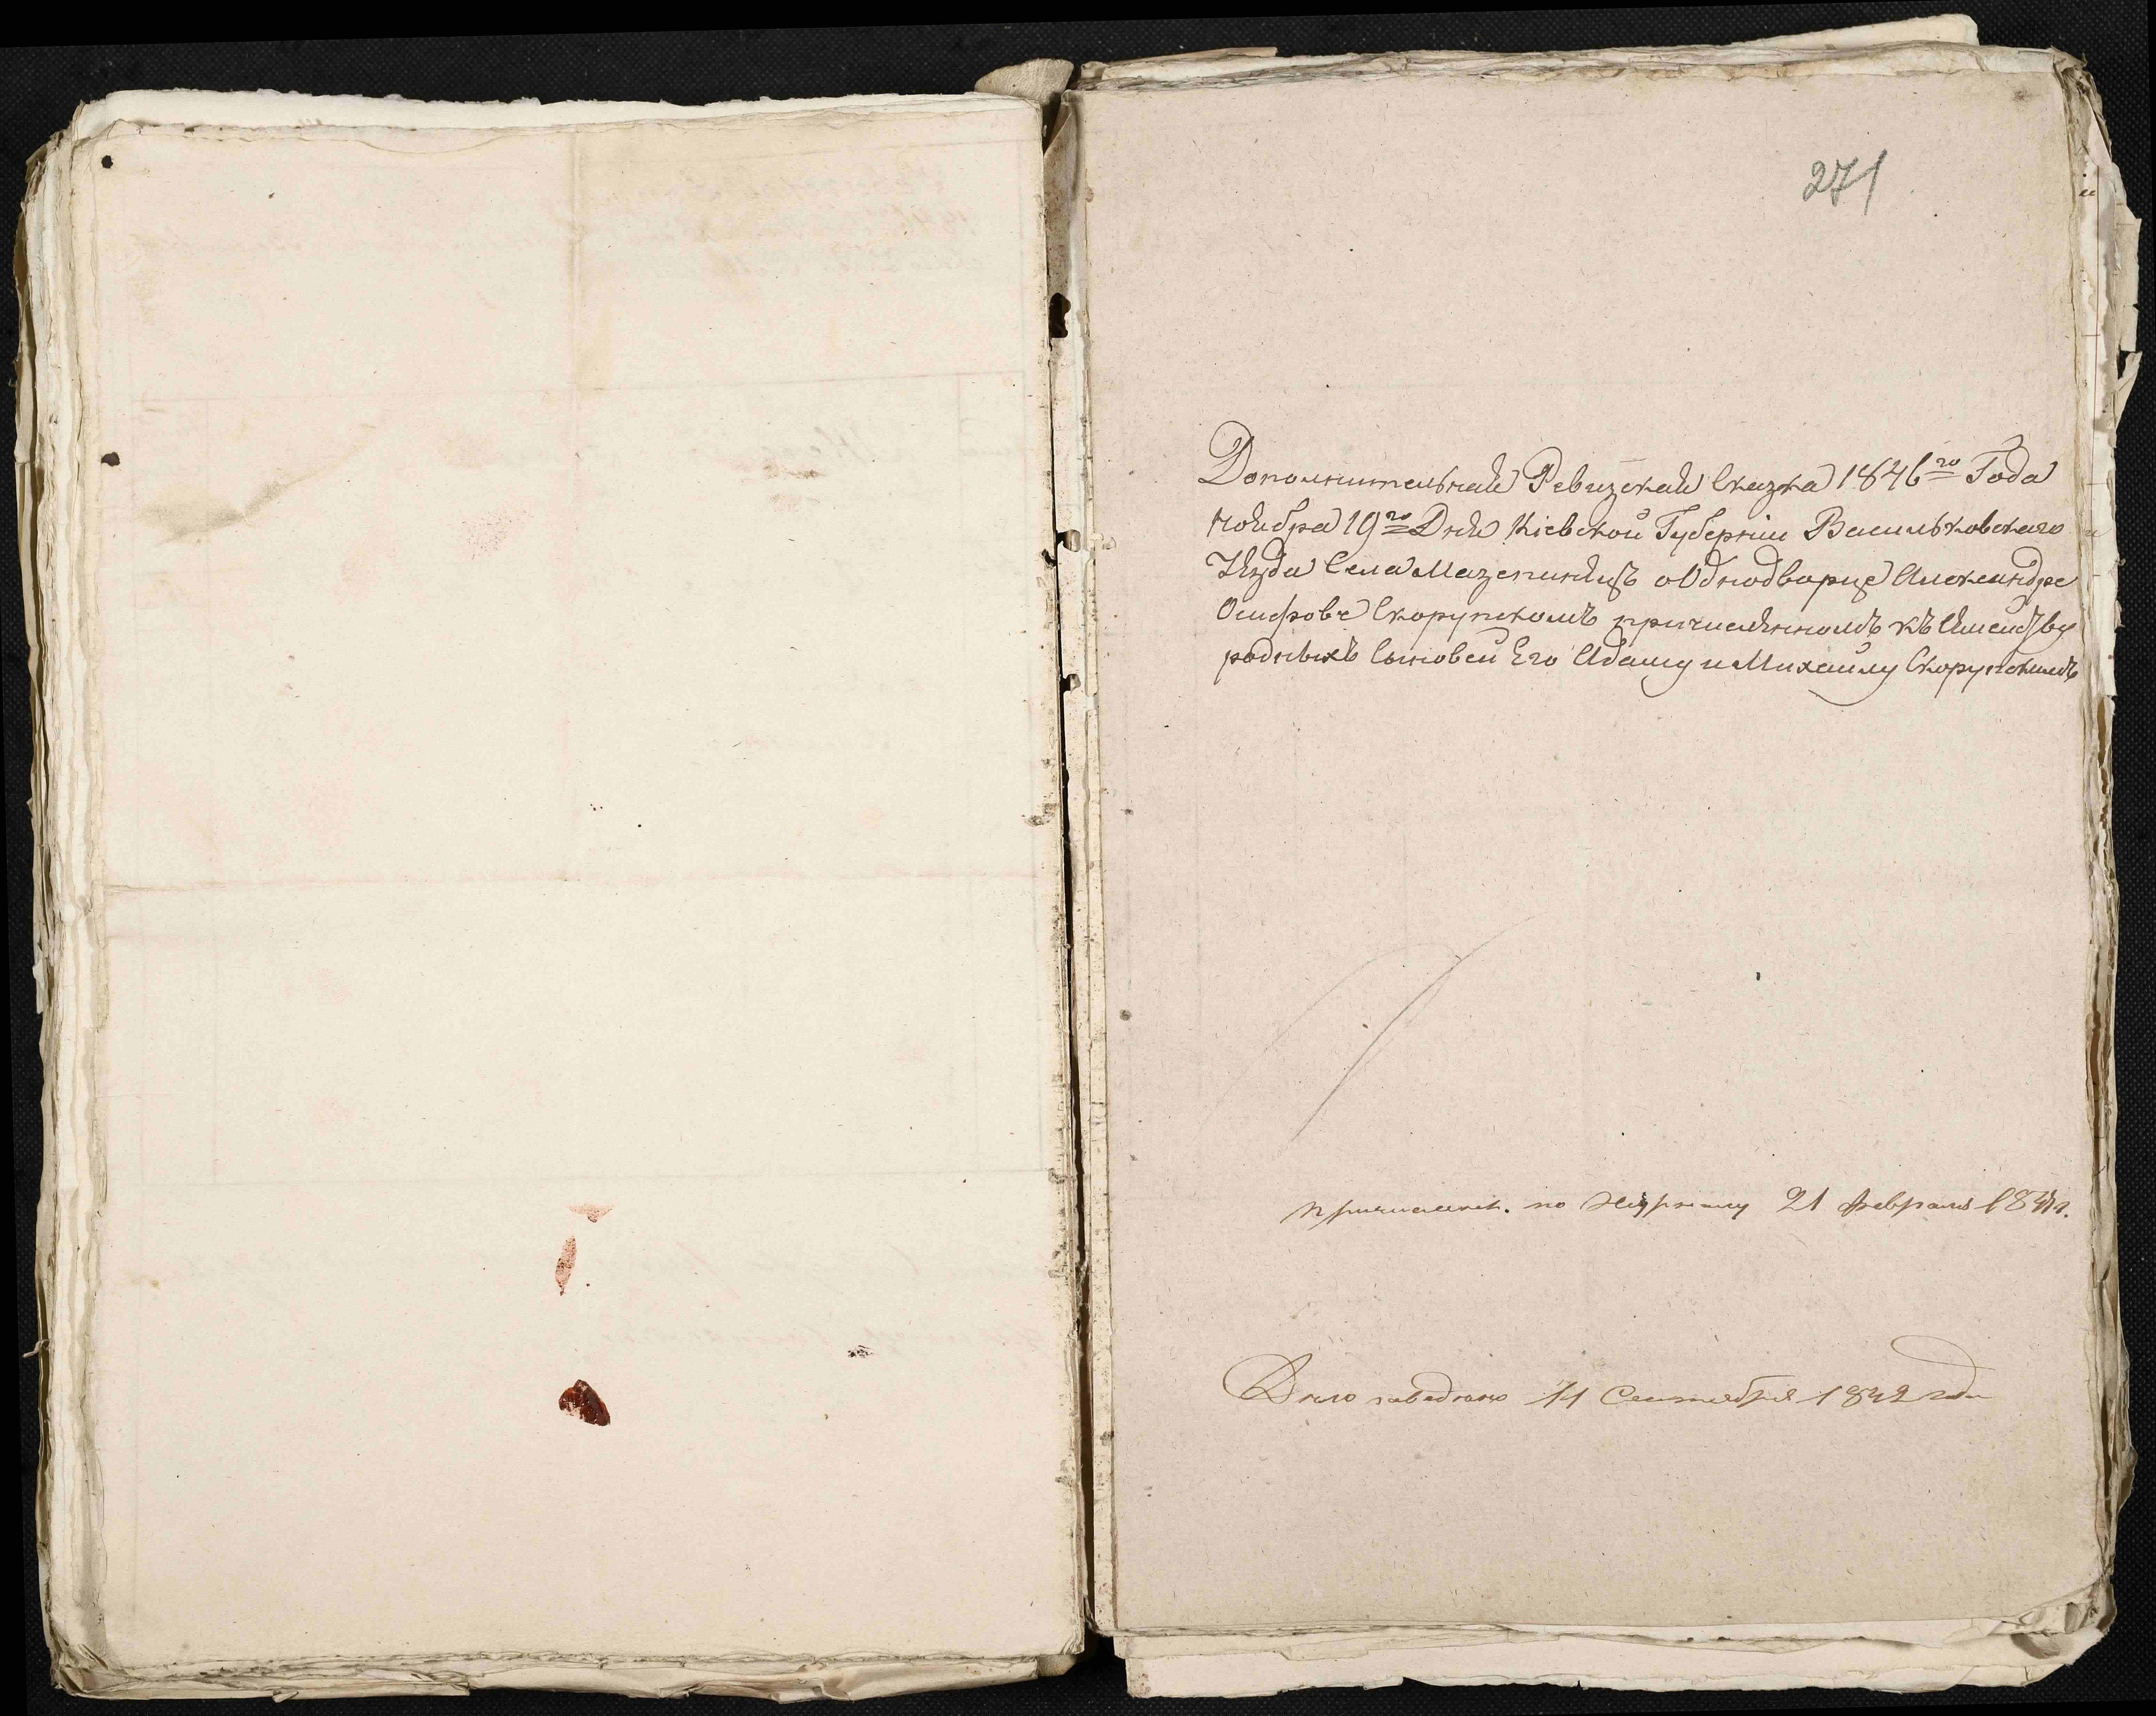 271
Дополнительная Ревизская Сказка 1846го Года
Ноября 19го Дня Кіевской Губерніи Васильковскаго
Уезда Села Мазепинецъ о Однодворце Александре
Осифове Скорупскомъ причисленномъ къ
родныхъ Сыновей Его Адаму и Михайлу Скорупскимъ
причислен. по Журналу 21 Февраля 184 г.
Дело заведено 11 Сентября 1842 года